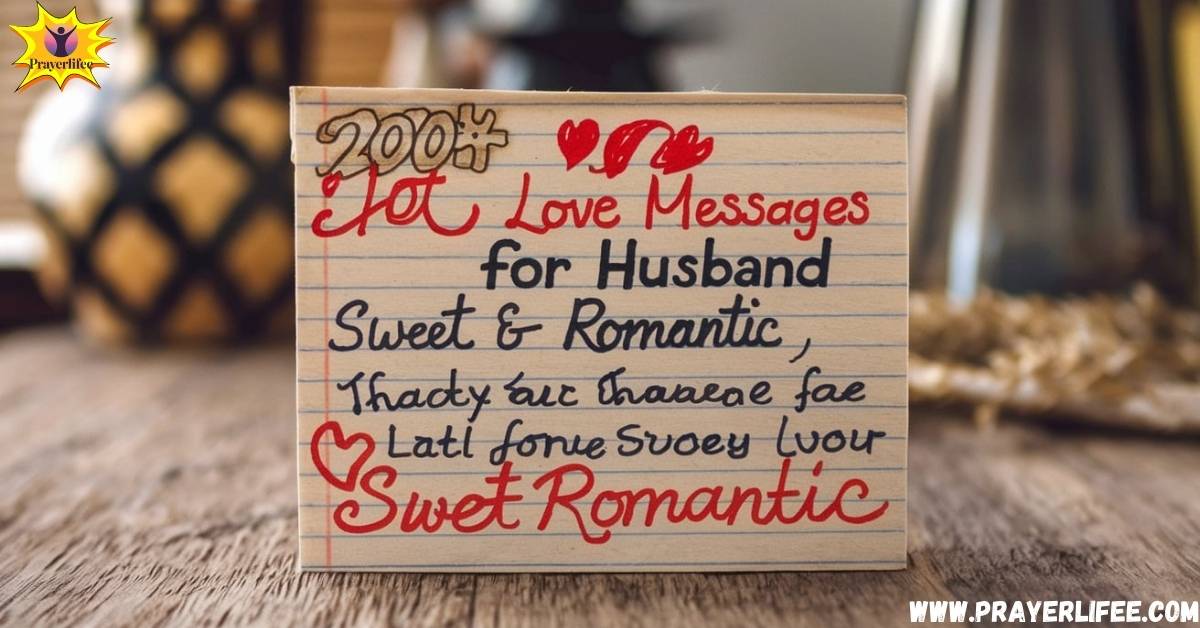 Prayerlifee
200#
Jot Love Messages
for Husband
Sweet & Romantic,
Thacty
fae
Latl fonue Svoey lvour
Swet Romantic
WWW.PRAYERLIFEE.COM